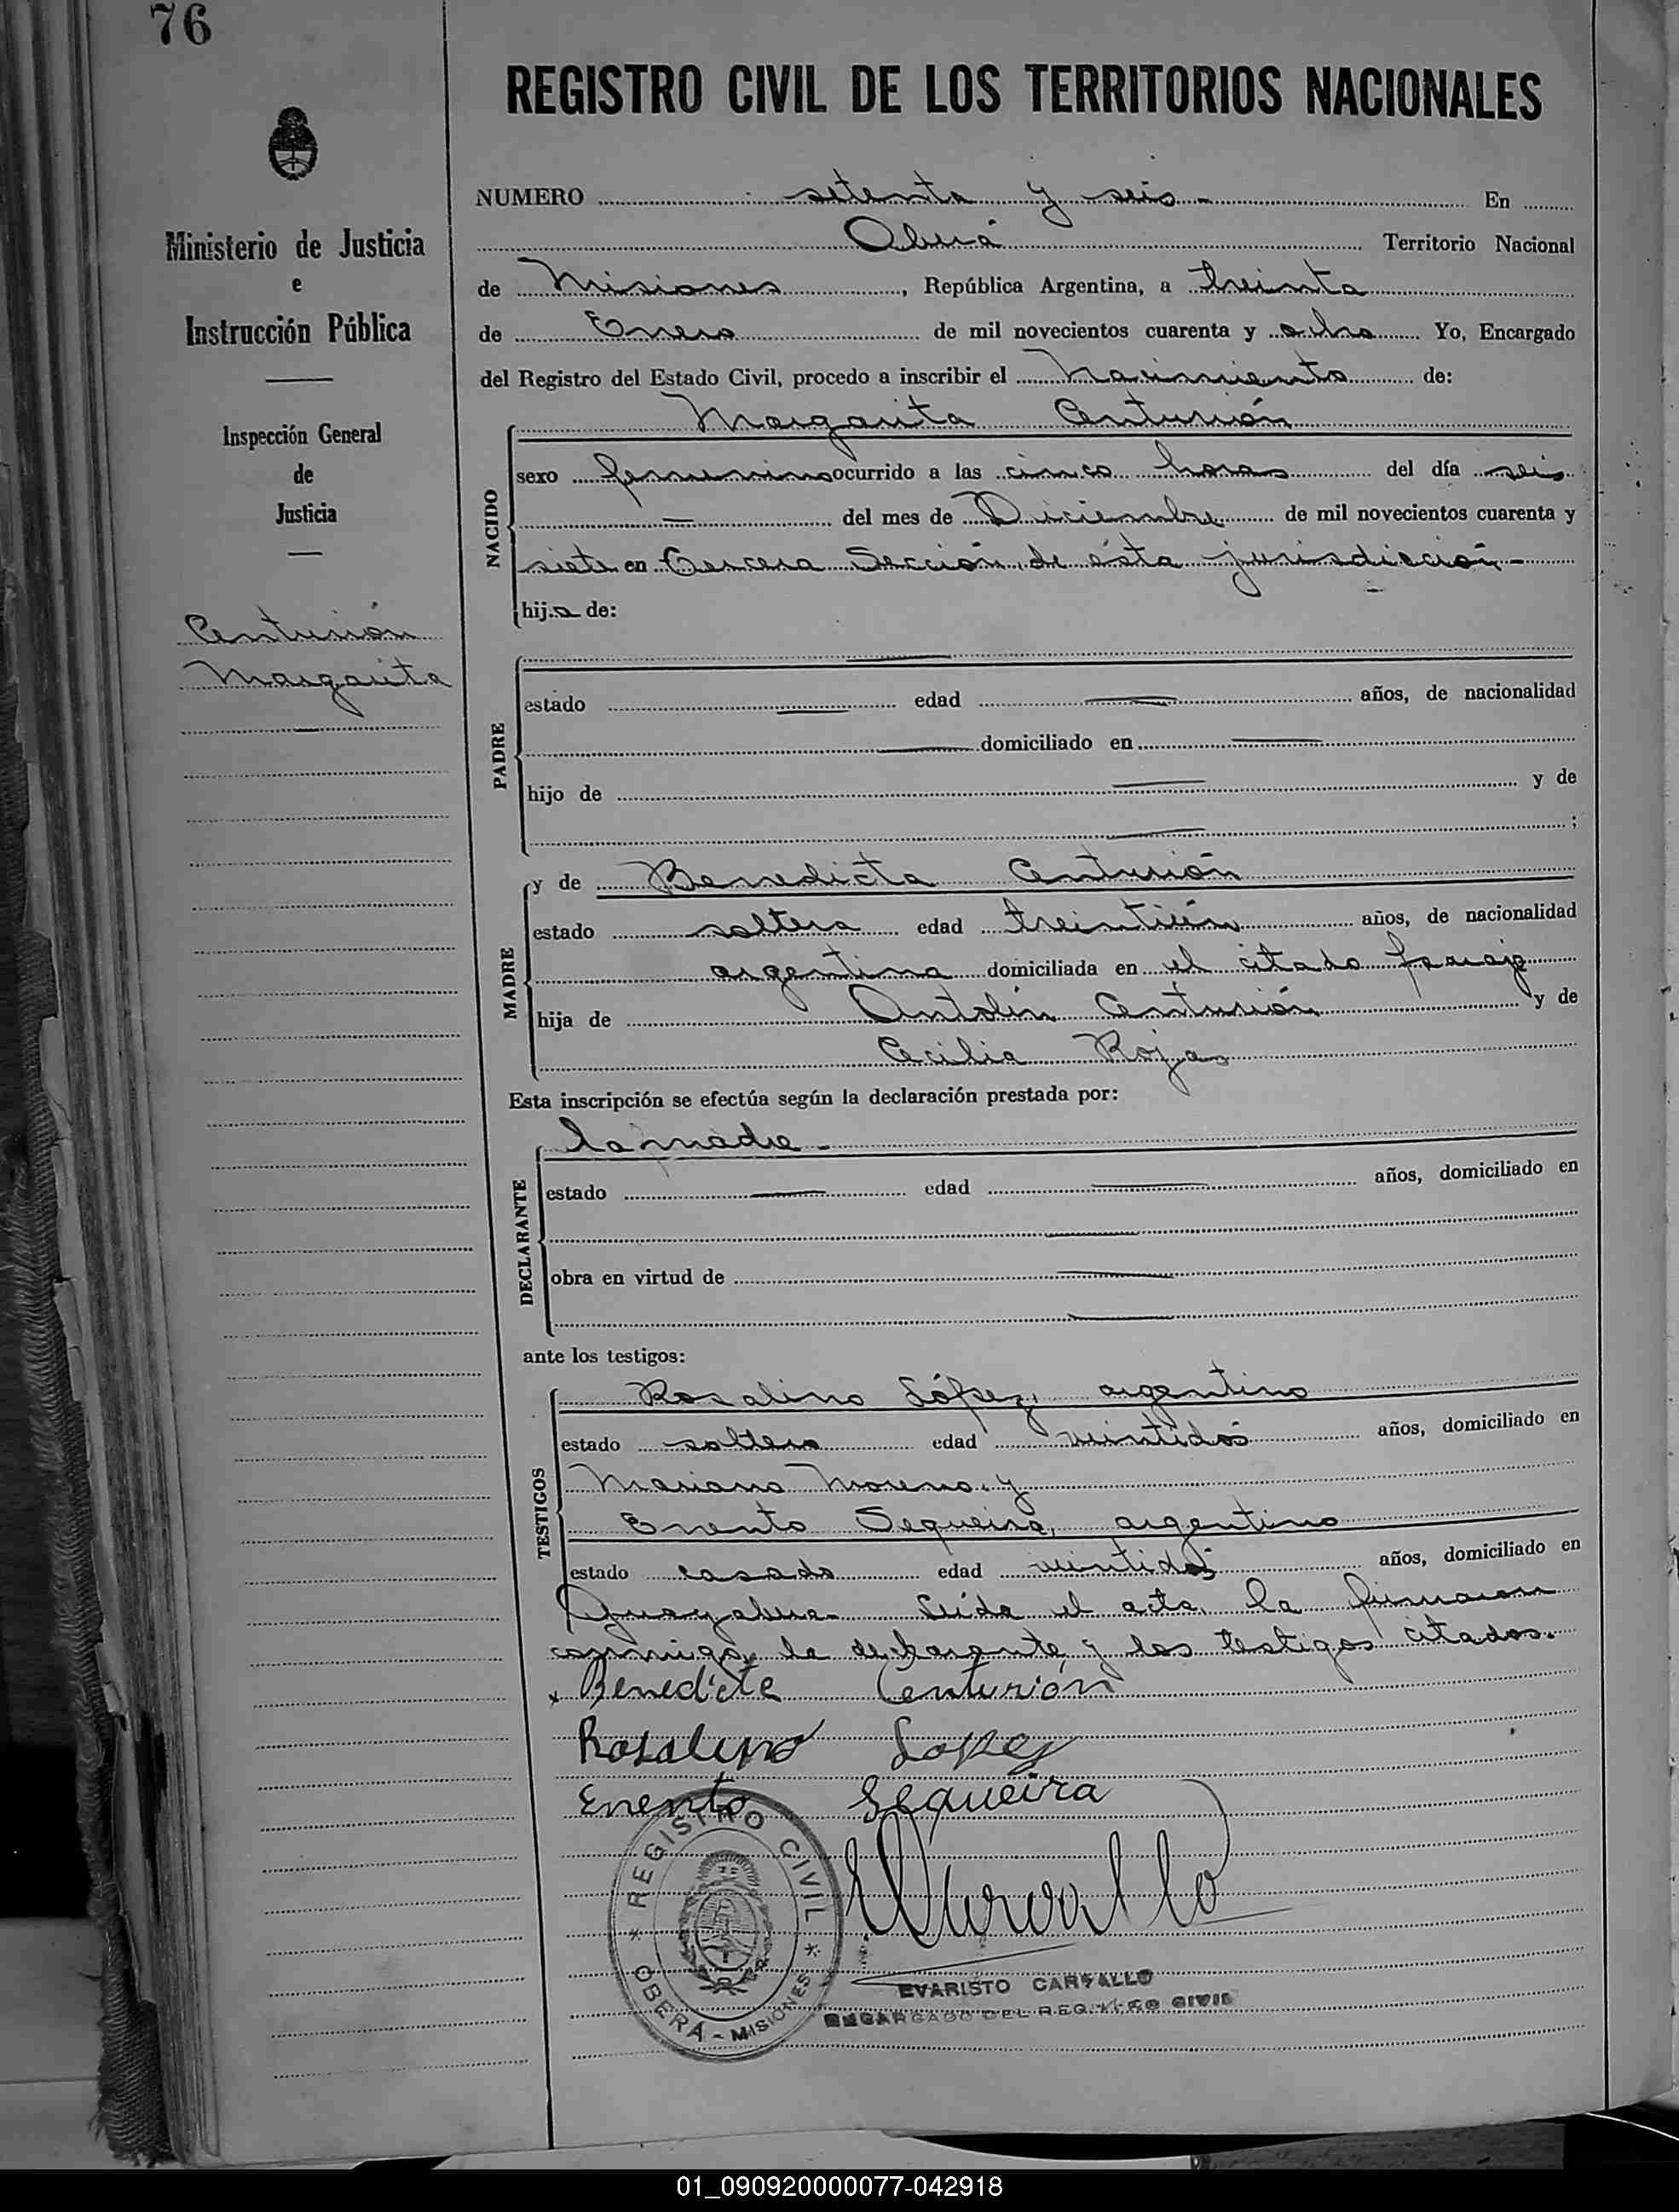 76
REGISTRO CIVIL DE LOS TERRITORIOS NACIONALES
Ministerio de Justicia
e
Instrucción Pública
Inspección General
de
Justicia
Centurión
Margarita
NUMERO setenta y seis - En
Oberá Territorio Nacional
de Misiones, República Argentina, a treinta
de Enero de mil novecientos cuarenta y ocho Yo, Encargado
del Registro del Estado Civil, procedo a inscribir el nacimiento de:
NACIDO
Margarita Centurión
sexo femenino ocurrido a las cinco horas del día seis
— del mes de Diciembre de mil novecientos cuarenta y
siete en Tercera Sección de ésta jurisdicción -
hija de:
PADRE
estado — edad — años, de nacionalidad
— domiciliado en —
hijo de — y de
— ;
MADRE
y de Benedicta Centurión
estado soltera edad treintiún años, de nacionalidad
argentina domiciliada en el citado paraje
hija de Antolín Centurión y de
Cecilia Rojas
Esta inscripción se efectúa según la declaración prestada por:
DECLARANTE
la madre -
estado — edad — años, domiciliado en
—
obra en virtud de —
—
ante los testigos:
TESTIGOS
Rosalino López, argentino
estado soltero edad veintidós años, domiciliado en
Mariano Moreno y
Enento Sequeira, argentino
estado casado edad veintidós años, domiciliado en
Leída el acta, la firmaron
conmigo, la declarante y los testigos citados.
x Benedicte Centurión
Rosalino Lopez
Enento Sequeira
REGISTRO CIVIL
OBERÁ - MISIONES
EVARISTO CARVALLO
ENCARGADO DEL REGISTRO CIVIL
01_090920000077-042918